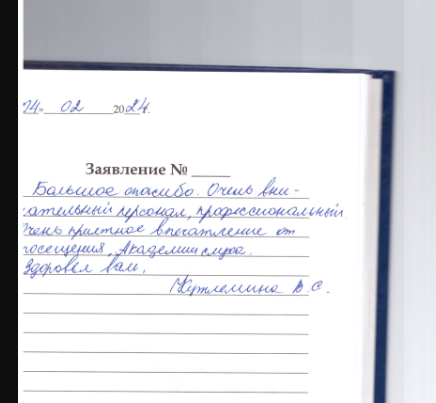 14. 02 2024.
Заявление №
Большое спасибо. Очень вни-
мательный персонал, профессиональный
Очень приятное впечатление от
посещения "Академии слуха.
Здоровья вам.
В.С.